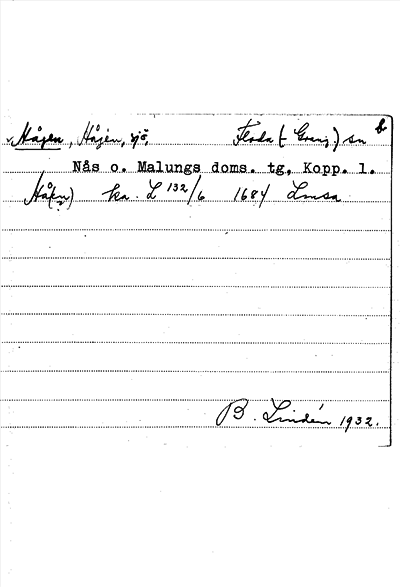 Hågen, Hågén, sjö, Floda (- Grang.) sn b
Nås o. Malungs doms. tg, Kopp. l.
Håk(n) ka. L 132/6 1684 Lmsa
B. Lindén 1932.